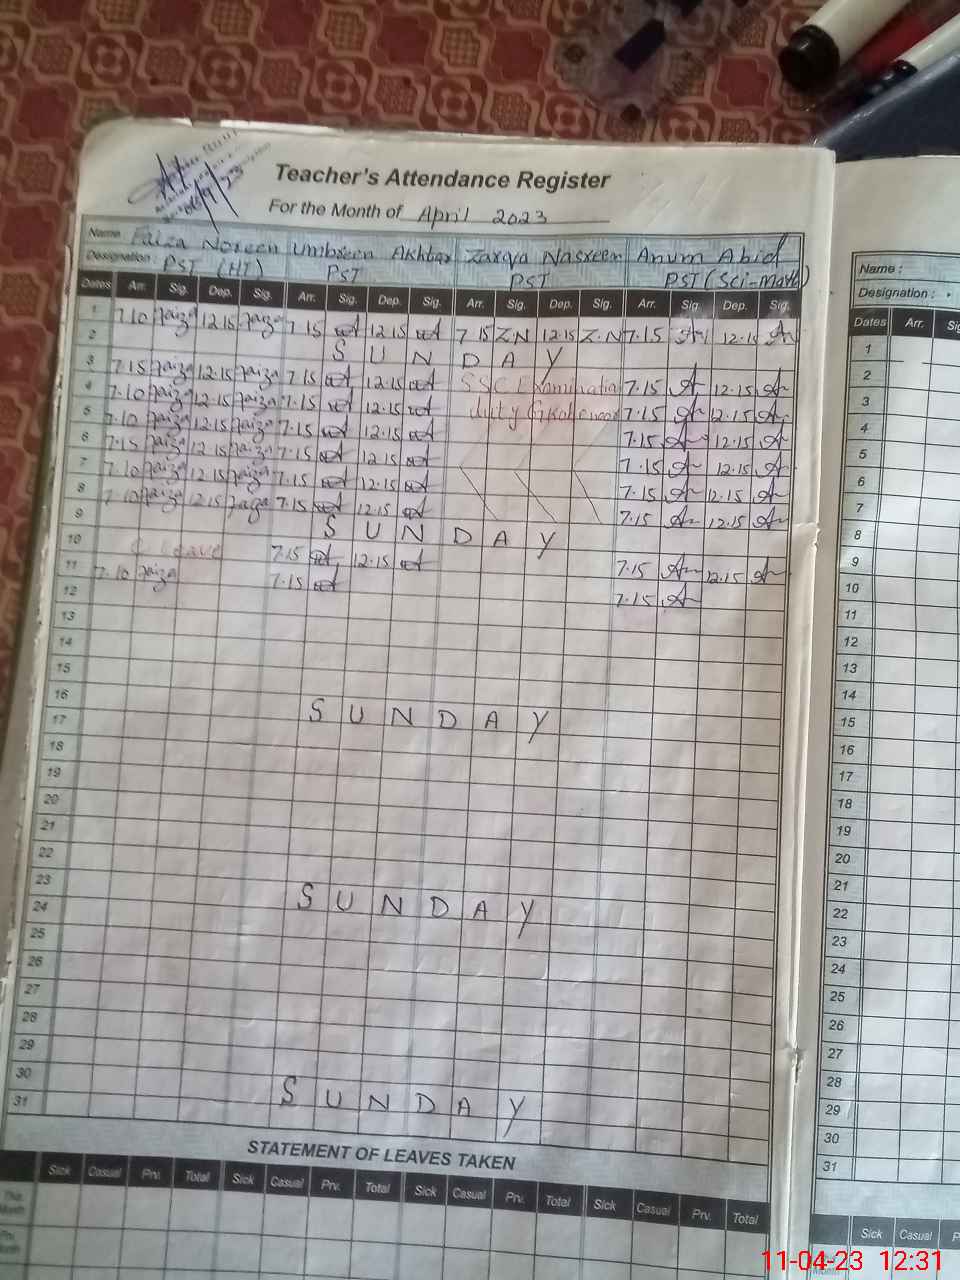 Teacher's Attendance Register
For the Month of April 2023
Name Faiza Noreen Umbreen Akhtar Zarqa Nasreen Anum Abid
Designation: PST (HT) PST PST PST (Sci-Math)
Dates Arr. Sig. Dep. Sig. Arr. Sig. Dep. Sig. Arr. Sig. Dep. Sig. Arr. Sig. Dep. Sig.
1 7.10 Faiza 12.15 Faiza 7.15 12.15 7.15 Z.N 12.15 Z.N 7.15 12.15
2 SUNDAY
3 7.15 Faiza 12.15 Faiza 7.15 12.15 SSC Examination 7.15 12.15
4 7.10 Faiza 12.15 Faiza 7.15 12.15 duty 7.15 12.15
5 7.10 Faiza 12.15 Faiza 7.15 12.15 7.15 12.15
6 7.15 Faiza 12.15 Faiza 7.15 12.15 7.15 12.15
7 7.10 Faiza 12.15 Faiza 7.15 12.15 7.15 12.15
8 7.10 Faiza 12.15 Faiza 7.15 12.15 7.15 12.15
9 SUNDAY
10 C Leave 7.15 12.15 7.15 12.15
11 7.10 Faiza 7.15 7.15
12
13
14
15
16 SUNDAY
17
18
19
20
21
22
23 SUNDAY
24
25
26
27
28
29
30 SUNDAY
31
STATEMENT OF LEAVES TAKEN
Sick Casual Prv. Total Sick Casual Prv. Total Sick Casual Prv. Total Sick Casual Prv. Total
This Month
Prv. Month
Name :
Designation :
Dates Arr.
1
2
3
4
5
6
7
8
9
10
11
12
13
14
15
16
17
18
19
20
21
22
23
24
25
26
27
28
29
30
31
Sick Casual
11-04-23 12:31